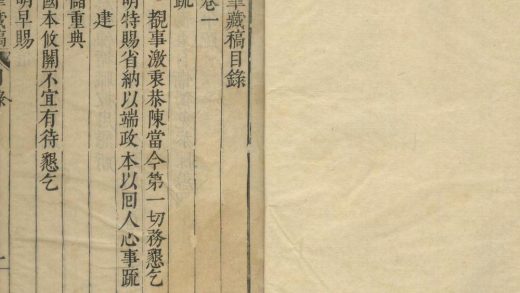 藏稿目錄
卷一
疏
覩事激衷恭陳當今第一切務懇乞
明特賜省納以端政本以囘人心事疏
建
重典
國本攸關不宜有待懇乞
明早賜
藏稿